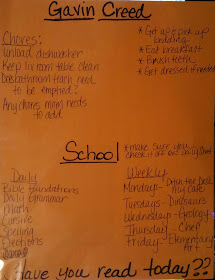 Gavin Creed
Chores:
Unload dishwasher
Keep liv room table clean
Does bathroom trash need
to be emptied?
Any chores mom needs
to add
* Get up & pick up
bedding
* Eat breakfast
* Brush teeth
* Get dressed if needed
School
* make sure you
check it off
Daily
Bible foundations
Daily Grammar
Math
Cursive
Spelling
Devotions
Weekly
Monday-
Tuesdays- Dinosaurs
Wednesday- Geology
Thursday- Chef
Friday- Elementary
Art
Have you read today??